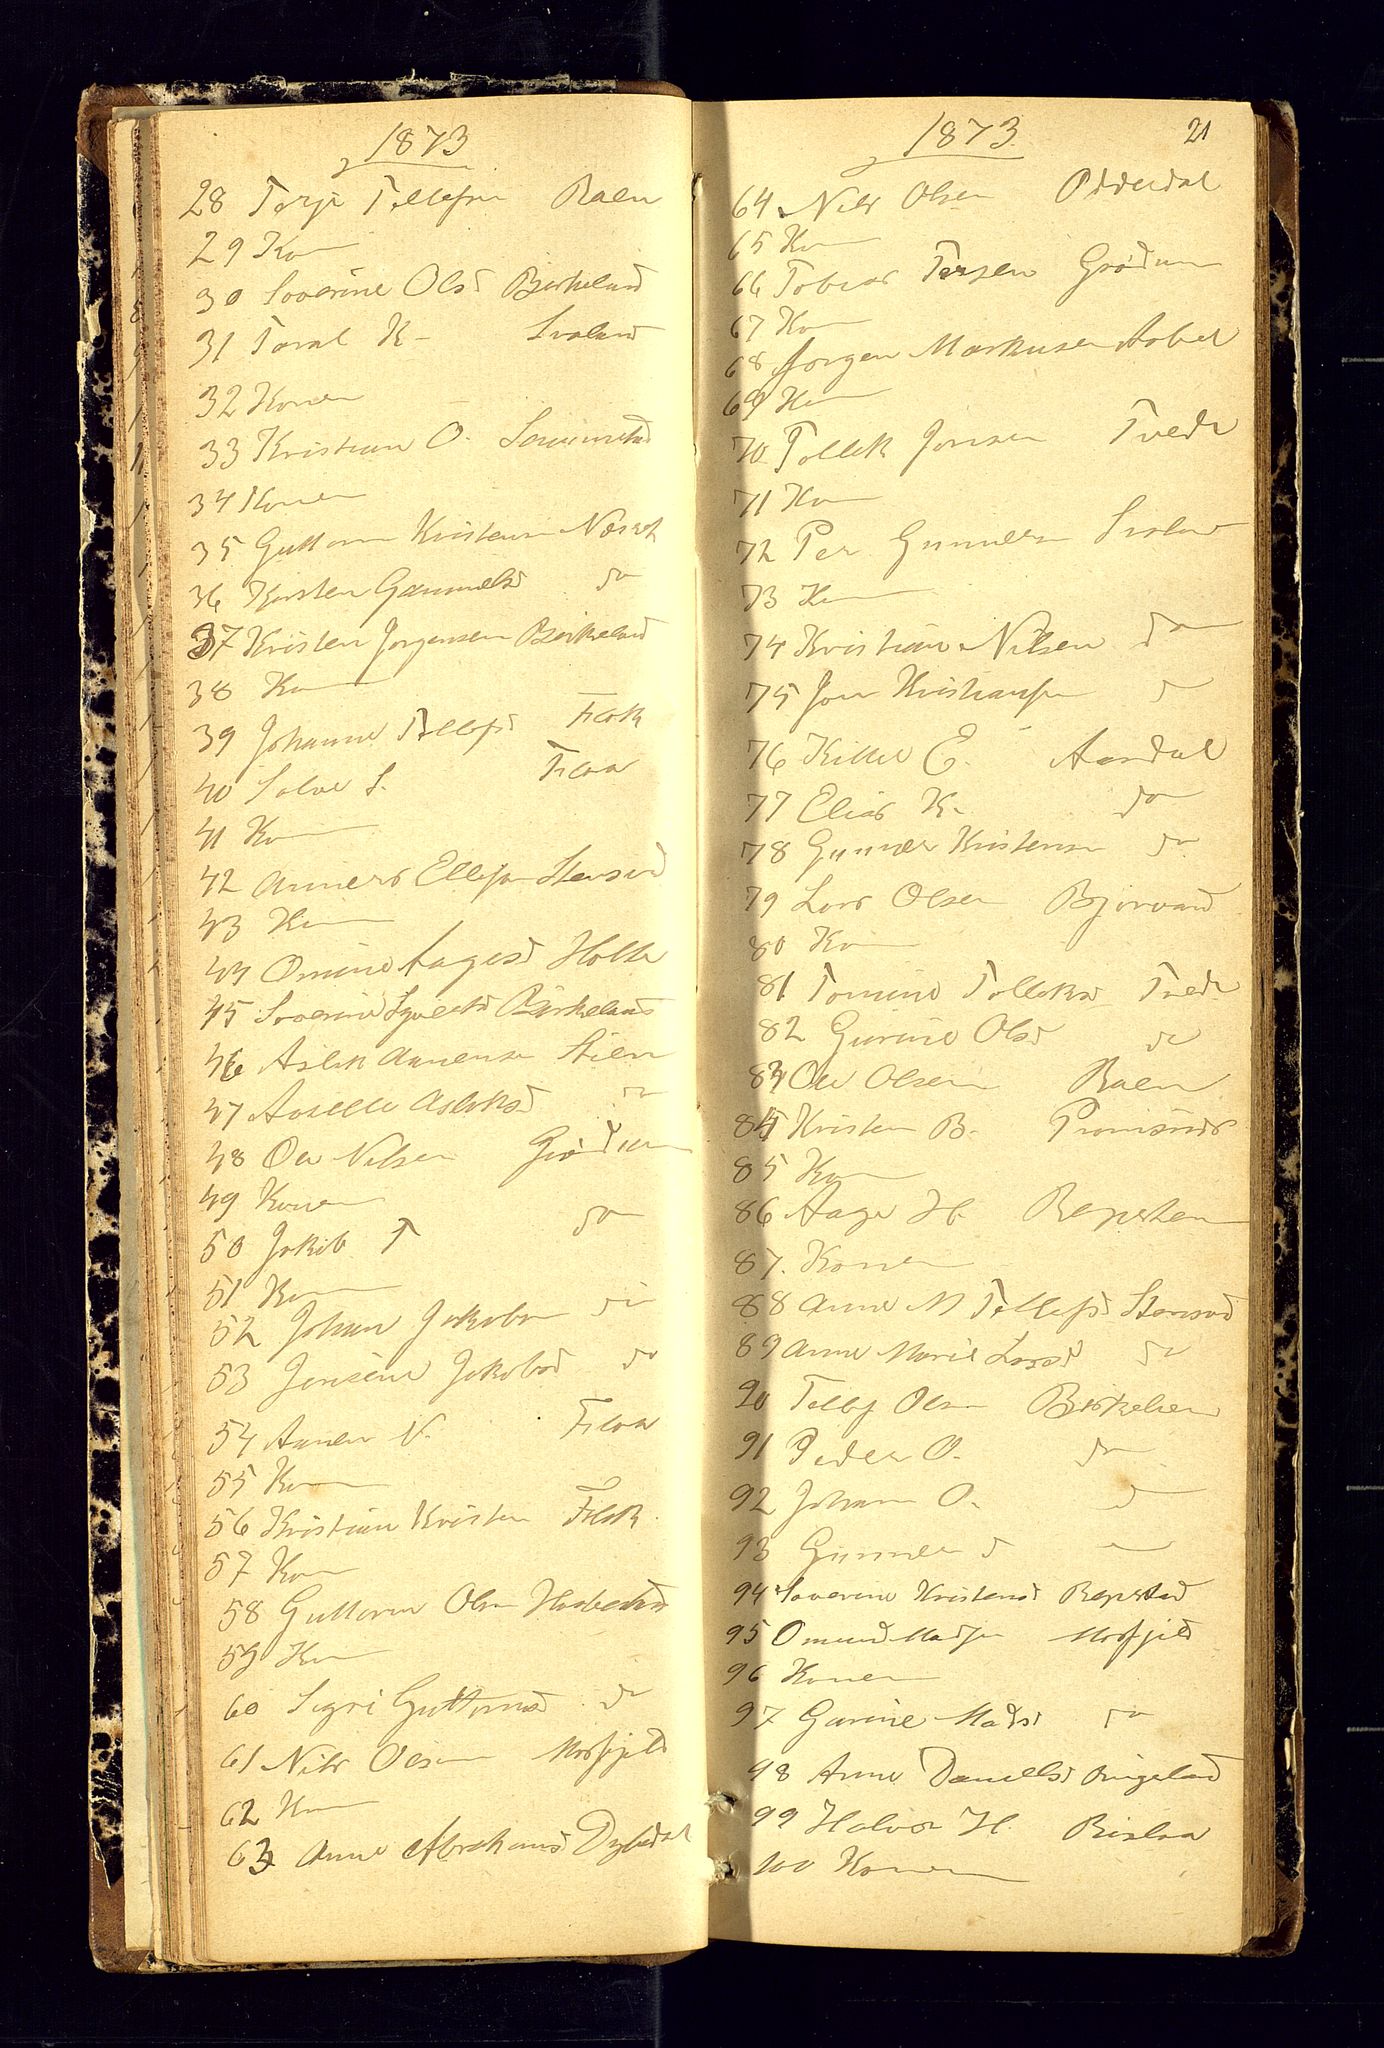 1873
28 Terje Tellefsen Baen
29 Ko
30 Soverine Olsd Birkeland
31 Toral K- Svaland
32 Konen
33 Kristian O.
34 Konen
35 Guttorm Kristensen
36 Kirsten Gammelsd do
37 Kristen Jorgensen Birkeland
38 Ko
39 Johanne Tellefsd Flak
40 Salve S. Flaa
41 Ko
42 Anners Ellefsen Stensvad
43 Ko
44 Omine Aagesd Holte
45 Soverine Birkeland
46 Aslak Aanensen Stien
47 Aaselle Aslaksd do
48 Ole Nilsen Grødum
49 Konen
50 Jakob T do
51 Ko
52 Johan Jakobsen do
53 Jensine Jakobsd do
54 Aanen N. Flaa
55 Ko
56 Kristian Kristen Flak
57 Ko
58 Guttorm Olsen
59 Ko
60 Sigri Guttormsd do
61 Nils Olsen Mosfjeld
62 Ko
63 Anne Abrahamsd
1873 21
64 Nils Olsen Oddersdal
65 Ko
66 Tobias Terjsen Grødum
67 Ko
68 Jorgen Markusen Aabel
69 Ko
70 Tollek Jonsen Tvede
71 Ko
72 Per Gunnersen
73 Ko
74 Kristian Nilsen do
75 Jon Kristiansen do
76 Kittel E. Aasdal
77 Elias K. do
78 Gunner Kristensen do
79 Lars Olsen Bjorvand
80 Ko
81 Tomine Tolleksd Tvede
82 Gurine Olsd do
83 Ole Olsen Baen
84 Kristen B.
85 Ko
86 Aage H. Repsten
87. Konen
88 Anne M Tellefsd Stensvad
89 Anne Marie Larsd do
90 Tellef Olsen Birkelien
91 Peder O. do
92 Johan O. do
93 Gunner
94 Soverine Kristensd Repstad
95 Omund Madsen Mosfjeld
96 Konen
97 Gurine Madsd do
98 Anne Danielsd Ringeland
99 Halvor H. Rislaa
100 Konen